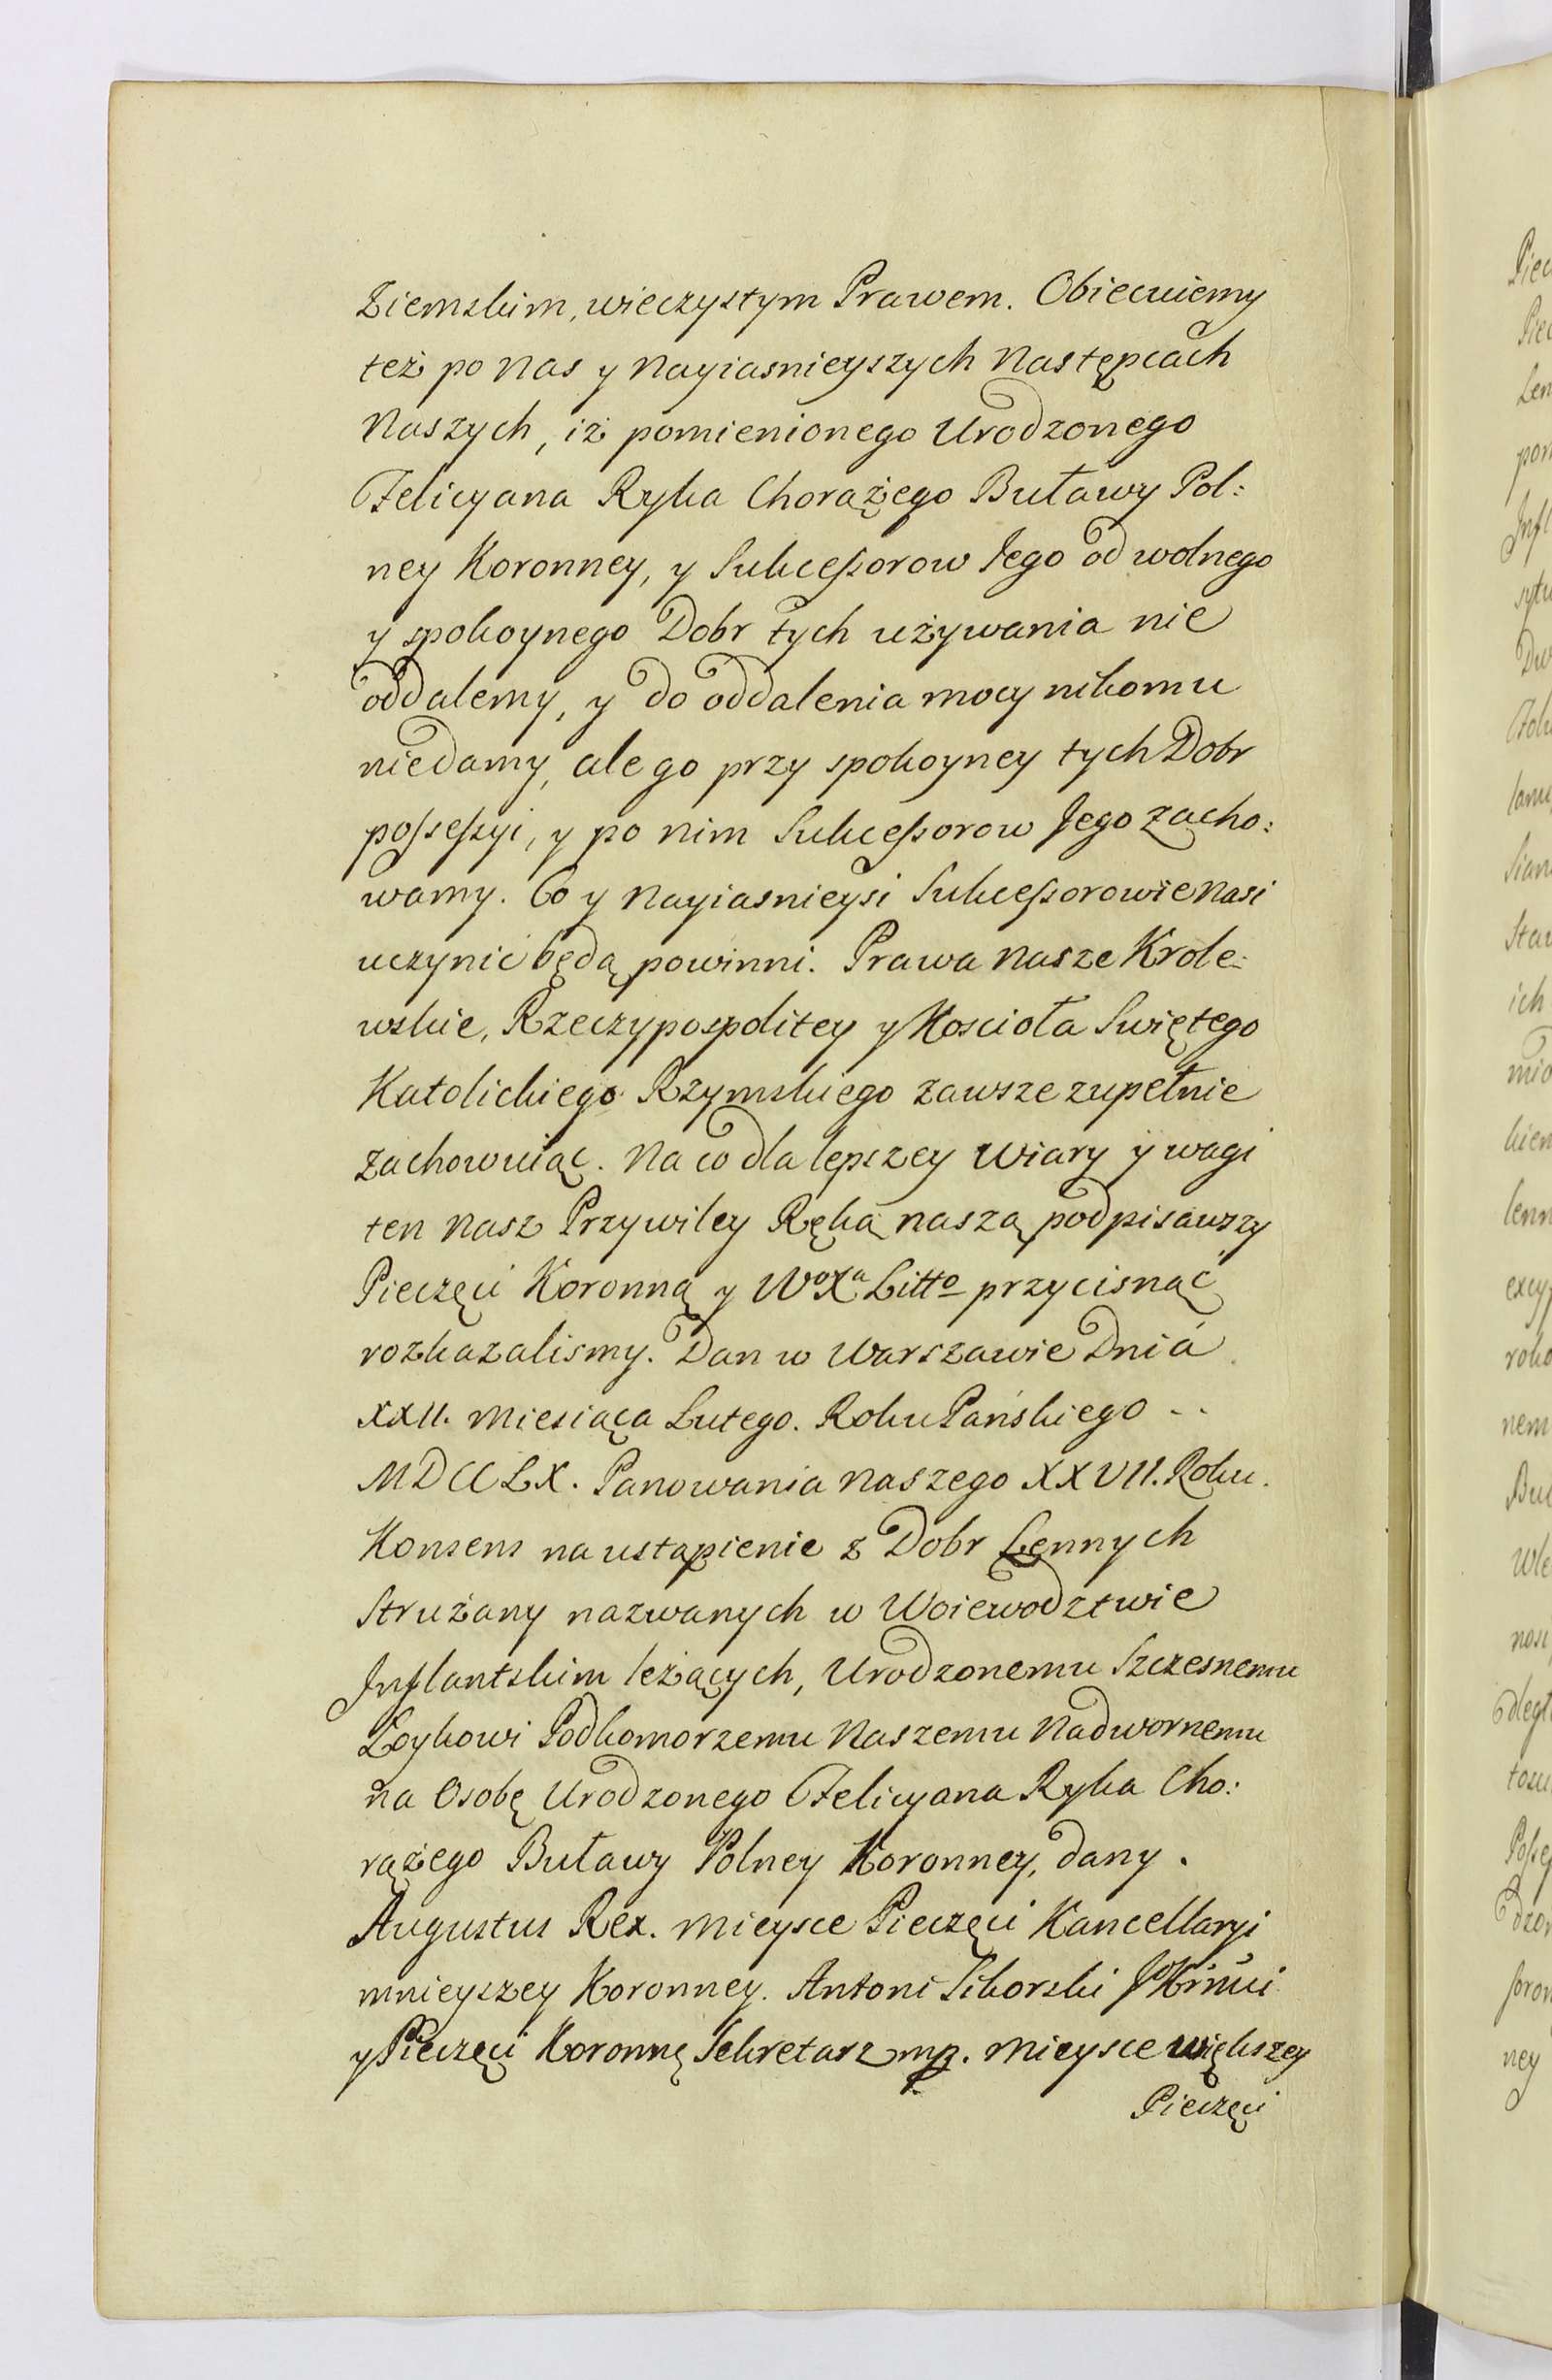 Ziemskim, wieczystym Prawem. Obiecuiemy
też po Nas y Nayiasnieyszych Następcach
Naszych, iż pomienionego Urodzonego
Felicyana Ryka Chorążego Buławy Pol:
ney Koronney, y Sukceßorow Jego od wolnego
y spokoynego Dobr tych używania nie
oddalemy, y do oddalenia mocy nikomu
niedamy, ale go przy spokoyney tych Dobr
poſseſsyi, y po nim Sukceßorow Jego zacho:
wamy. Co y Nayiasnieysi Sukceßorowie Nasi
uczynić będą powinni. Prawa Nasze Krole:
wskie, Rzeczypospolitey y Kościoła Swiętego
Katolickiego Rzymskiego zawsze zupełnie
zachowuiąc. Na co dla lepszey Wiary y wagi
ten Nasz Przywiley Ręką naszą podpisawszy
Pieczęci Koronną y WoXa Litto przycisnąć
rozkazalismy. Dan w Warszawie Dnia
XXII. Miesiąca Lutego. Roku Pańskiego --
MDCCLX. Panowania Naszego XXVII. Roku.
Konsens na ustąpienie z Dobr Lennych
Strużany nazwanych w Woiewodztwie
Inflantskim leżących, Urodzonemu Szczesnemu
Łoykowi Podkomorzemu Naszemu Nadwornemu
na Osobę Urodzonego Felicyana Ryka Cho:
rążego Buławy Polney Koronney, dany.
Augustus Rex. Mieysce Pieczęci Kancellaryi
mnieyszey Koronney. Antoni Sikorski
y Pieczęci Koronnę Sekretarz mp. Mieysce większey
Pieczęci
Piec
Piec
Len
pom
Infl
sytu
Sian
ich
mio
kiem
lenn
excyp
roko
nem
nosi
ney